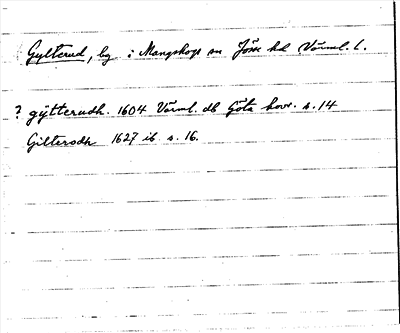 Gylterud, by i Mangskogs sn Jösse hd Värml. l.
? gÿtterudh. 1604 Värml. db Göta hovr. s. 14
Gilterodh 1627 ib. s. 16.